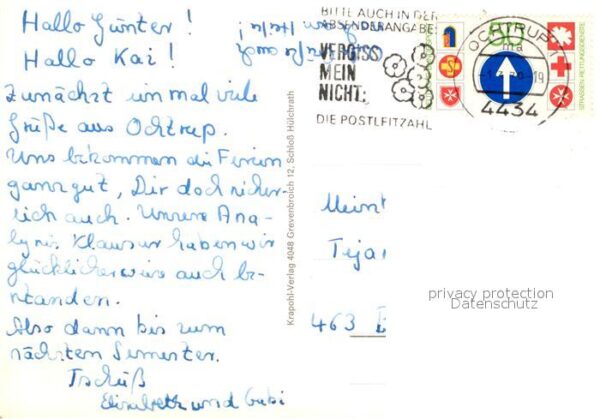 Hallo Günter!
Hallo Kai!
Zunächst einmal viele
Grüße aus Ochtrup.
Uns bekommen die Ferien
ganz gut, Dir doch sicher-
lich auch. Unsere Ana-
lysis Klausur haben wir
glücklicherweise auch be-
standen.
Also dann bis zum
nächsten Semester.
Tschüß
Elisabeth und Gabi
Krapohl-Verlag 4048 Grevenbroich 12, Schloß Hülchrath
BITTE AUCH IN DER
ABSENDERANGABE
VERGISS
MEIN
NICHT:
DIE POSTLEITZAHL
OCHTRUP 1
ma
-19
4434
50
STRASSEN-RETTUNGSDIENSTE
Tejar
463
privacy protection
Datenschutz